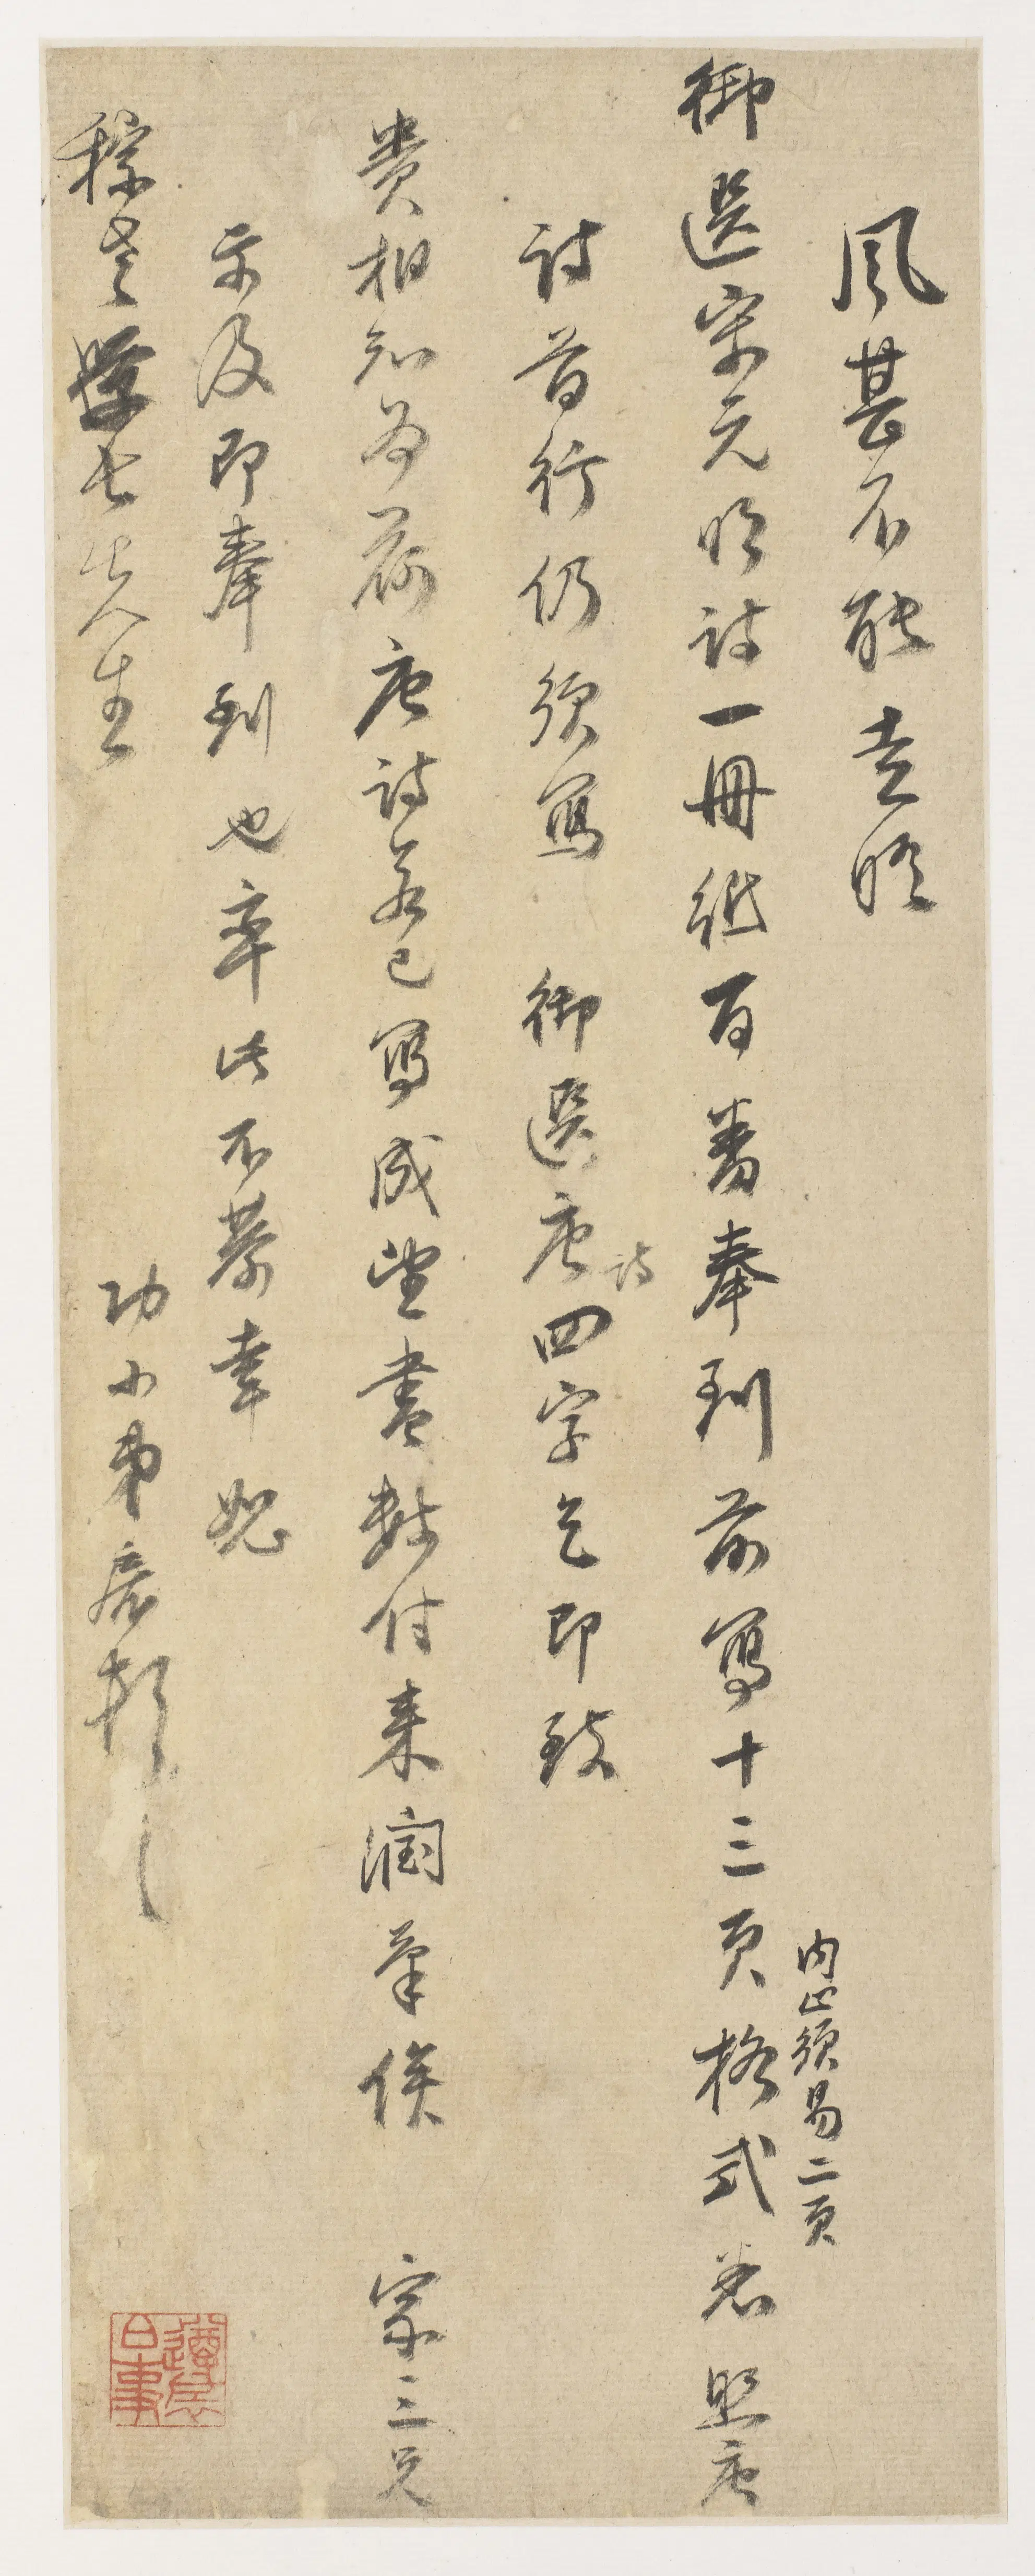 風甚不能走晤
御選宋元明詩一冊紙百番奉到前寫十三頁格式悉照唐
內止須易二頁
詩首行仍須寫 御選唐詩四字乞即致
貴相知為荷唐詩若已寫成望盡數付來潤筆俟 宗三兄
示及即奉到也率此不恭幸恕
稼老學長先生
功小弟宸